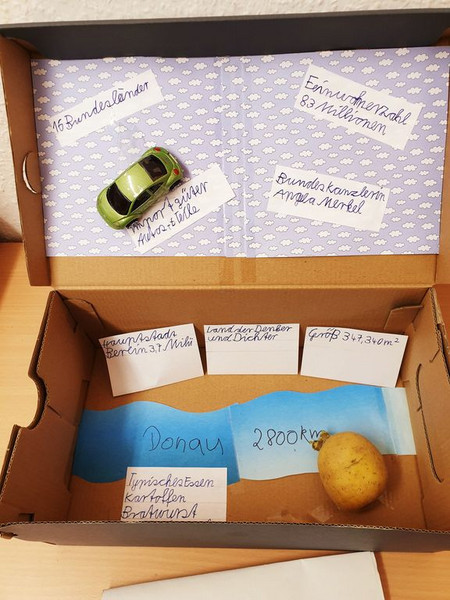 16 Bundesländer
Einwohnerzahl
83 Millionen
Importgüter
Autos + teile
Bundeskanzlerin
Angela Merkel
Hauptstadt
Berlin 3,7 Milii
Land der Denker
und Dichter
Größ 347,340m²
Donau 2800km
Typisches Essen
Kartoffen
Bratwurst